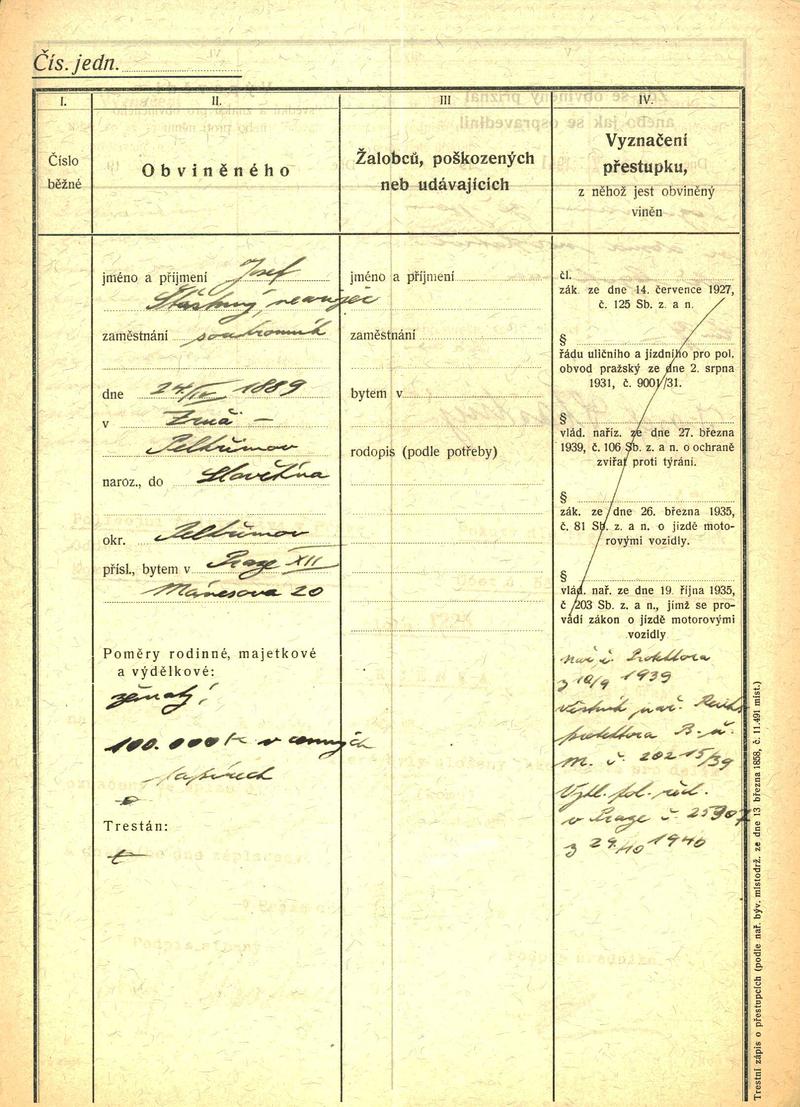 Čís. jedn.
I.
Číslo
běžné
II.
Obviněného
III
Žalobců, poškozených
neb udávajících
IV.
Vyznačení
přestupku,
z něhož jest obviněný
viněn
jméno a příjmení Josef
Šťastný,
zaměstnání soukromník
dne 24/IV 1889
v
Pelhřimov
naroz., do
okr. Pelhřimov
přísl., bytem v Praze XII
Mánesova 20
Poměry rodinné, majetkové
a výdělkové:
ženatý,
100.000 K v cenných
papírech
Trestán:
jméno a příjmení
zaměstnání
bytem v
rodopis (podle potřeby)
čl.
zák. ze dne 14. července 1927,
č. 125 Sb. z. a n.
§
řádu uličního a jízdního pro pol.
obvod pražský ze dne 2. srpna
1931, č. 9001/31.
§
vlád. naříz. ze dne 27. března
1939, č. 106 Sb. z. a n. o ochraně
zvířat proti týrání.
§
zák. ze dne 26. března 1935,
č. 81 Sb. z. a n. o jízdě moto-
rovými vozidly.
§
vlád. nař. ze dne 19. října 1935,
č 203 Sb. z. a n., jímž se pro-
vádí zákon o jízdě motorovými
vozidly
nař. ř. Protektora
z 10/9 1939
věstník nař. Reichs
protektora B. a.
M. č. 20215/39
Vyhl. pol. řed.
v Praze č. 25907
z 29./10 1940
Trestní zápis o přestupcích (podle nař. býv. místodrž. ze dne 13 března 1858, č. 11.491 míst.)